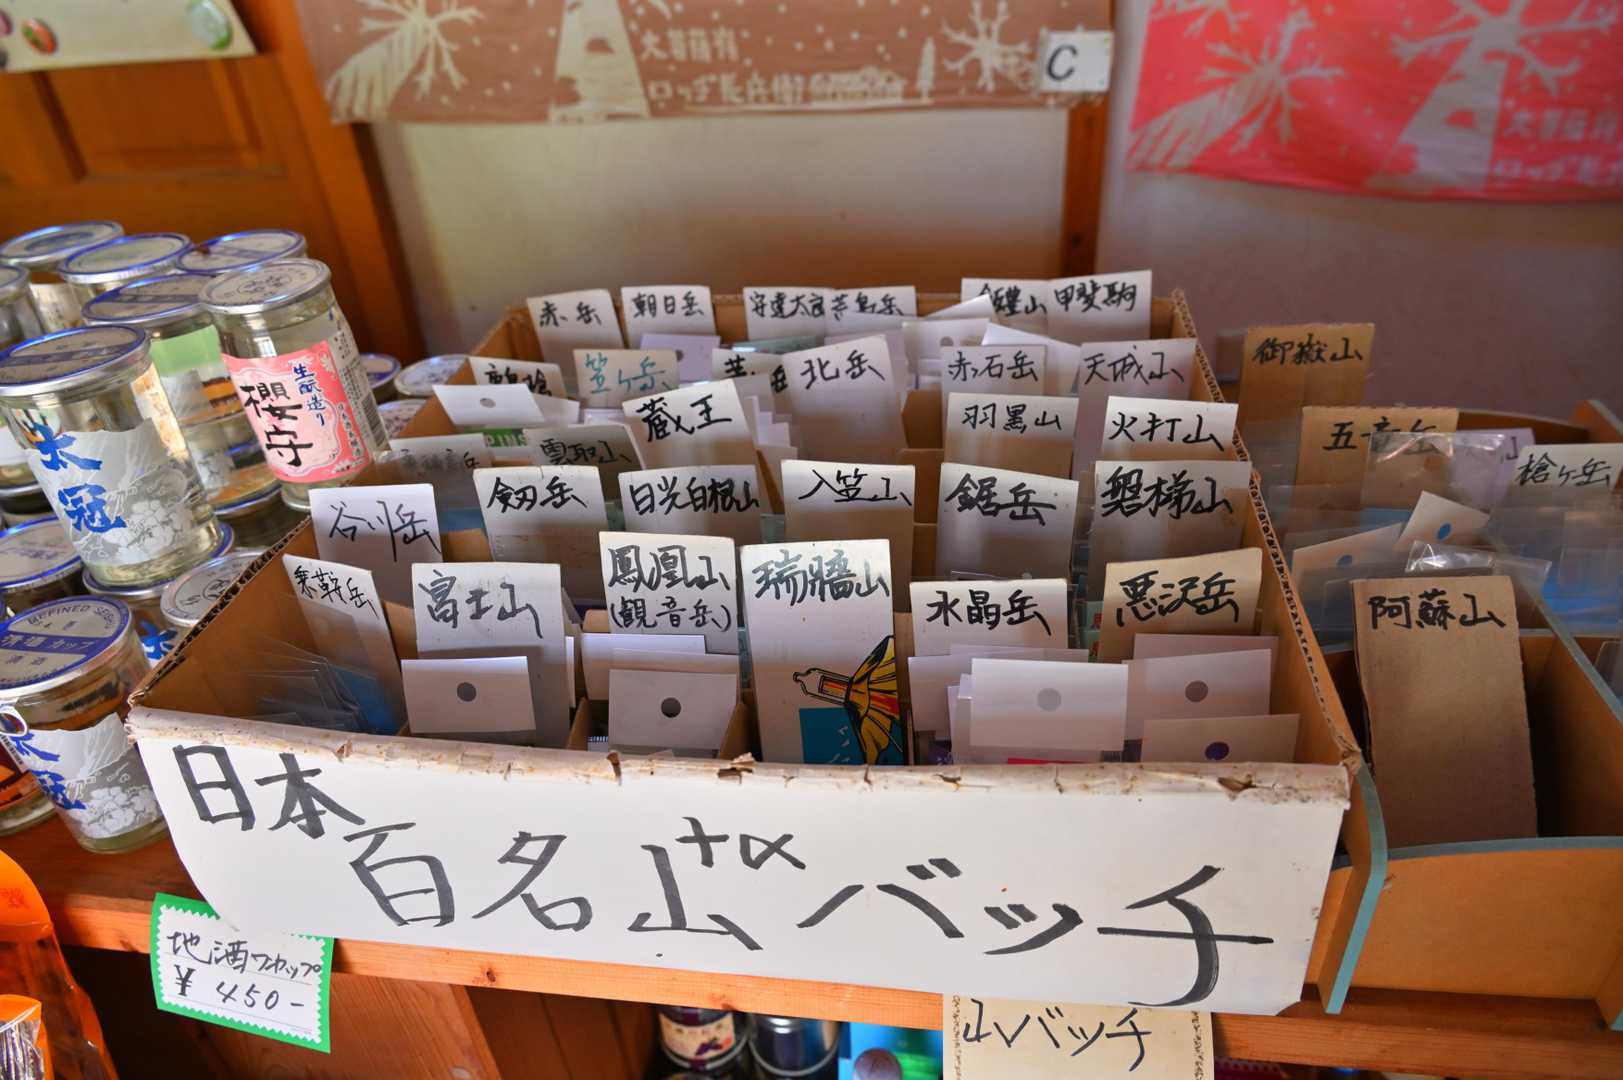 大菩薩嶺
ロッヂ長兵衛
C
大菩薩嶺
ロッヂ長兵
赤岳
朝日岳
安達太良
荒島岳
甲斐駒
笠ヶ岳
北岳
赤石岳
天城山
御嶽山
蔵王
羽黒山
火打山
五竜岳
雲取山
槍ヶ岳
谷川岳
剱岳
日光白根山
入笠山
鋸岳
磐梯山
乗鞍岳
富士山
鳳凰山
(観音岳)
瑞牆山
水晶岳
悪沢岳
阿蘇山
生酛造り
櫻守
太冠
REFINED
清酒カップ
清酒
太冠
日本百名山+αバッチ
地酒ワンカップ
¥450-
山バッチ